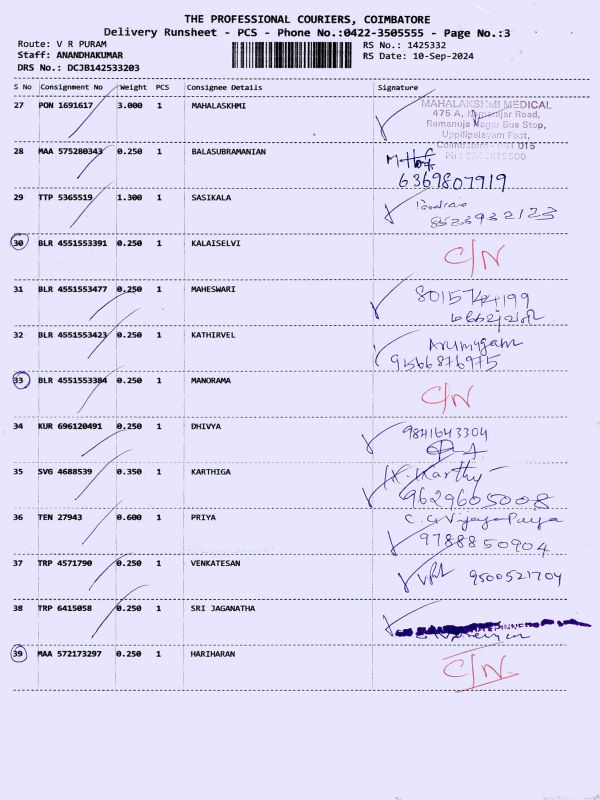 THE PROFESSIONAL COURIERS, COIMBATORE
Delivery Runsheet - PCS - Phone No.:0422-3505555 - Page No.:3
Route: V R PURAM
Staff: ANANDHAKUMAR
DRS No.: DCJB142533203
RS No.: 1425332
RS Date: 10-Sep-2024
S No Consignment No Weight PCS Consignee Details Signature
27 PON 1691617 3.000 1 MAHALASKHMI
MAHALAKSHMI MEDICAL
475 A, Kamarajar Road,
Ramanuja Nagar Bus Stop,
Uppilipalayam Post,
Coimbatore - 641 015
28 MAA 575280343 0.250 1 BALASUBRAMANIAN
6369807919
29 TTP 5365519 1.300 1 SASIKALA
8523932123
30 BLR 4551553391 0.250 1 KALAISELVI C/N
31 BLR 4551553477 0.250 1 MAHESWARI
8015744199
32 BLR 4551553423 0.250 1 KATHIRVEL Arumugam
9566876975
33 BLR 4551553384 0.250 1 MANORAMA C/N
34 KUR 696120491 0.250 1 DHIVYA 9841643304
35 SVG 4688539 0.350 1 KARTHIGA K. Karthy
9629605008
36 TEN 27943 0.600 1 PRIYA C. G Vijaya Priya
9788850904
37 TRP 4571790 0.250 1 VENKATESAN 9500521704
38 TRP 6415058 0.250 1 SRI JAGANATHA
39 MAA 572173297 0.250 1 HARIHARAN C/N